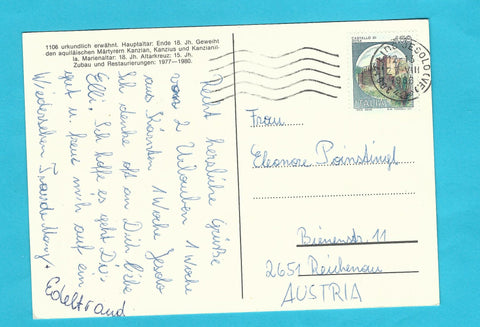 1106 urkundlich erwähnt. Hauptaltar: Ende 18. Jh. Geweiht
den aquiläischen Märtyrern Kanzian, Kanzius und Kanziania
la. Marienaltar: 18. Jh. Altarkreuz: 15. Jh.
Zubau und Restaurierungen: 1977–1980.
Recht herzliche Grüße
von 2 Urlauben 1 Woche
aus Kärnten 1 Woche Jesolo
Ich denke oft an Dich liebe
Elli, Ich hoffe es geht Dir
gut u. freue mich auf ein
Wiedersehen
Edeltraud
CASTELLO DI
ITALIA
JESOLO (VE)
Frau
Eleonore Poinstingl
Bienenstr. 11
2651 Reichenau
AUSTRIA